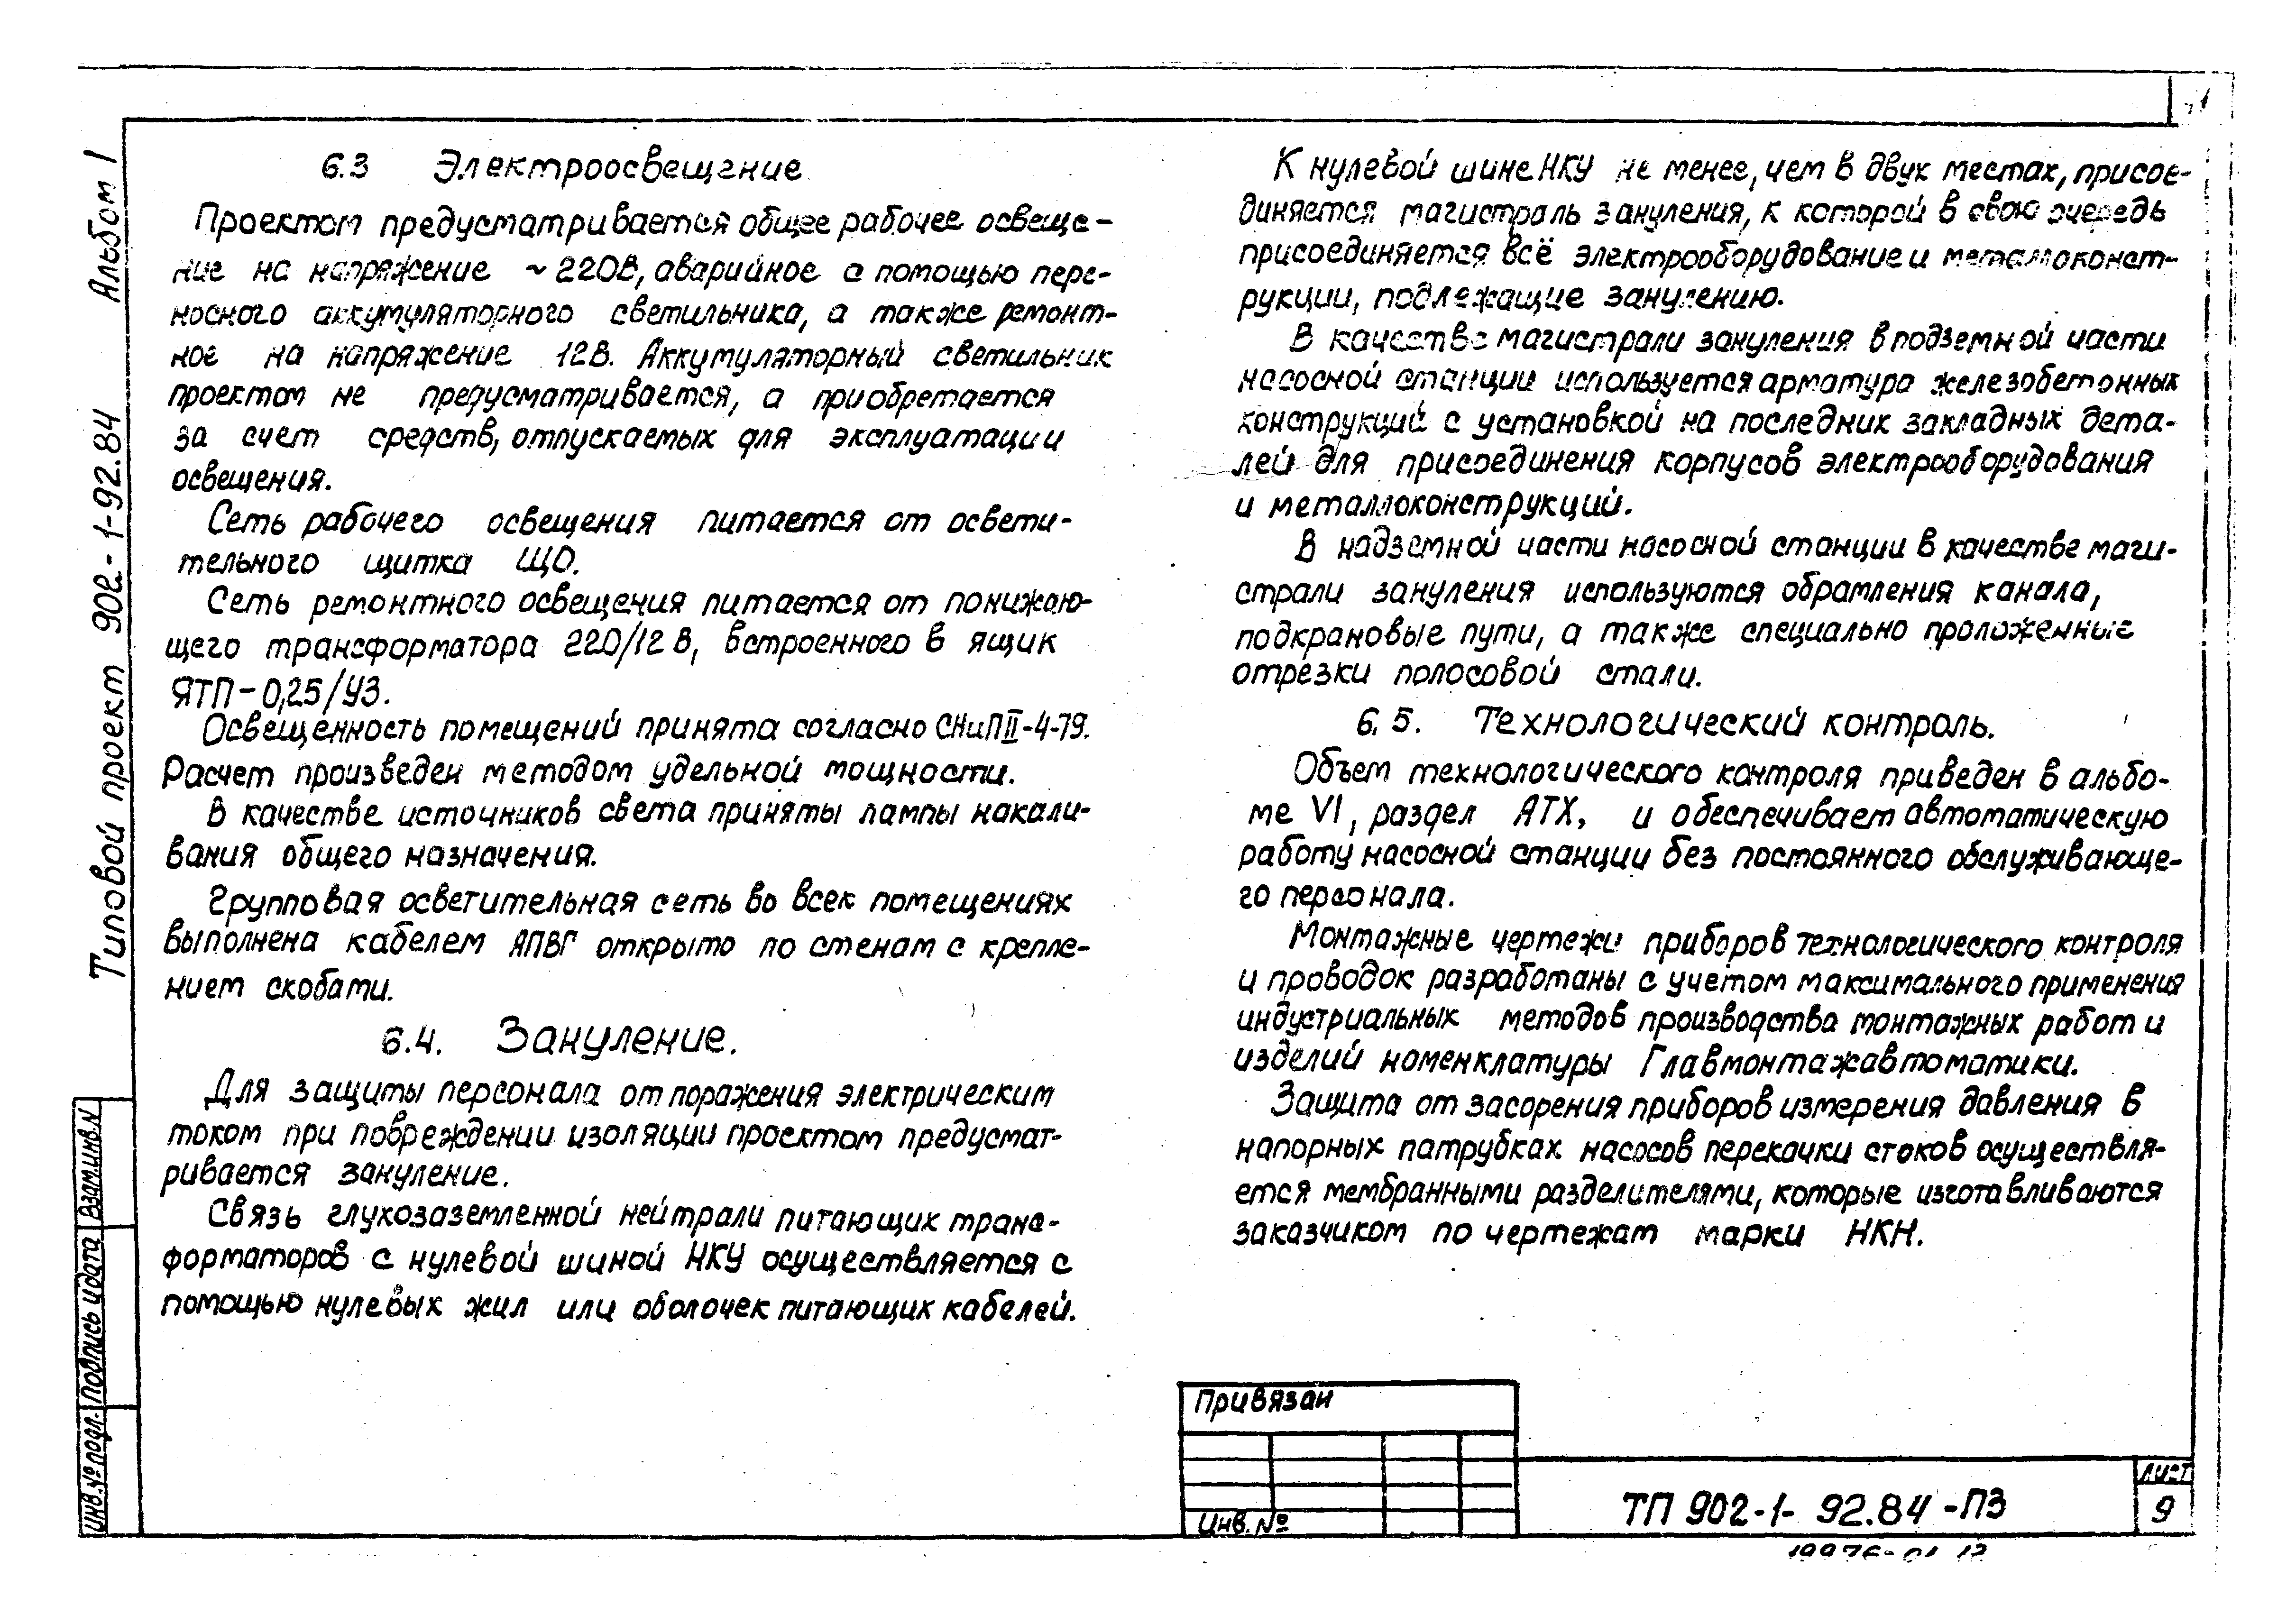 6.3 Электроосвещение.
Проектом предусматривается общее рабочее освеще-
ние на напряжение ~220В, аварийное с помощью пере-
носного аккумуляторного светильника, а также ремонт-
ное на напряжение 12В. Аккумуляторный светильник
проектом не предусматривается, а приобретается
за счет средств, отпускаемых для эксплуатации
освещения.
Сеть рабочего освещения питается от освети-
тельного щитка ЩО.
Сеть ремонтного освещения питается от понижаю-
щего трансформатора 220/12 В, встроенного в ящик
ЯТП-0,25/У3.
Освещенность помещений принята согласно СНиП II-4-79.
Расчет произведен методом удельной мощности.
В качестве источников света приняты лампы накали-
вания общего назначения.
Групповая осветительная сеть во всех помещениях
выполнена кабелем АПВГ открыто по стенам с крепле-
нием скобами.
6.4. Зануление.
Для защиты персонала от поражения электрическим
током при повреждении изоляции проектом предусмат-
ривается зануление.
Связь глухозаземленной нейтрали питающих транс-
форматоров с нулевой шиной НКУ осуществляется с
помощью нулевых жил или оболочек питающих кабелей.
К нулевой шине НКУ не менее, чем в двух местах, присое-
диняется магистраль зануления, к которой в свою очередь
присоединяется всё электрооборудование и металлоконст-
рукции, подлежащие занулению.
В качестве магистрали зануления в подземной части
насосной станции используется арматура железобетонных
конструкций с установкой на последних закладных дета-
лей для присоединения корпусов электрооборудования
и металлоконструкций.
В надземной части насосной станции в качестве маги-
страли зануления используются обрамления канала,
подкрановые пути, а также специально проложенные
отрезки полосовой стали.
6.5. Технологический контроль.
Объем технологического контроля приведен в альбо-
ме VI, раздел АТХ, и обеспечивает автоматическую
работу насосной станции без постоянного обслуживающе-
го персонала.
Монтажные чертежи приборов технологического контроля
и проводок разработаны с учетом максимального применения
индустриальных методов производства монтажных работ и
изделий номенклатуры Главмонтажавтоматики.
Защита от засорения приборов измерения давления в
напорных патрубках насосов перекачки стоков осуществля-
ется мембранными разделителями, которые изготавливаются
заказчиком по чертежам марки НКН.
Типовой проект 902-1-92.84 Альбом I
Взам.инв.N
Подпись и дата
Инв.№ подл.
Привязан
Инв. №
ТП 902-1-92.84-ПЗ
Лист
9